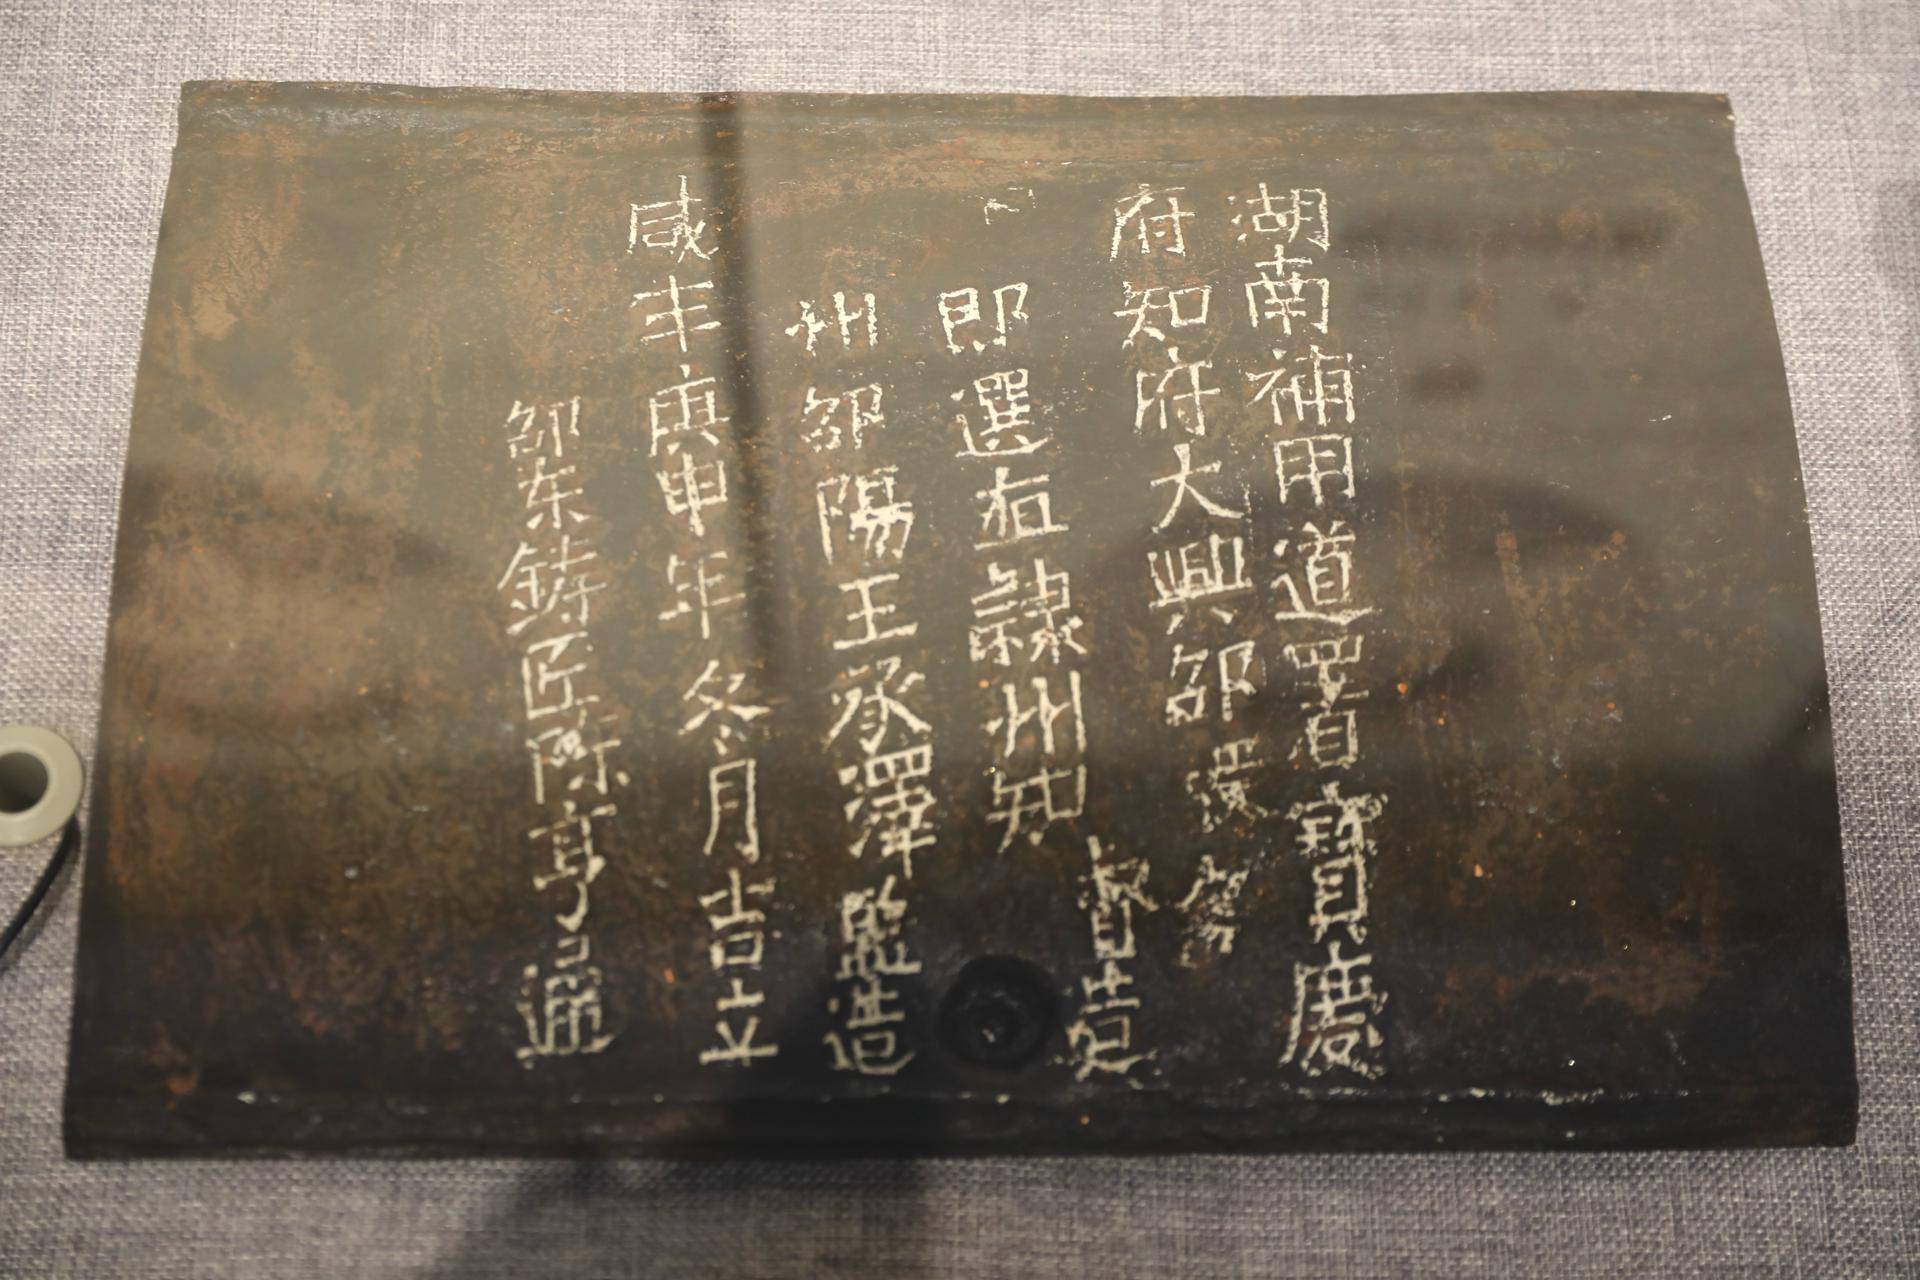 湖南補用道署寶慶
府知府大興邵綬名
督造
即選直隸州知
州邵陽王承澤監造
咸丰庚申年冬月吉立
邵东鋳匠陈亨通